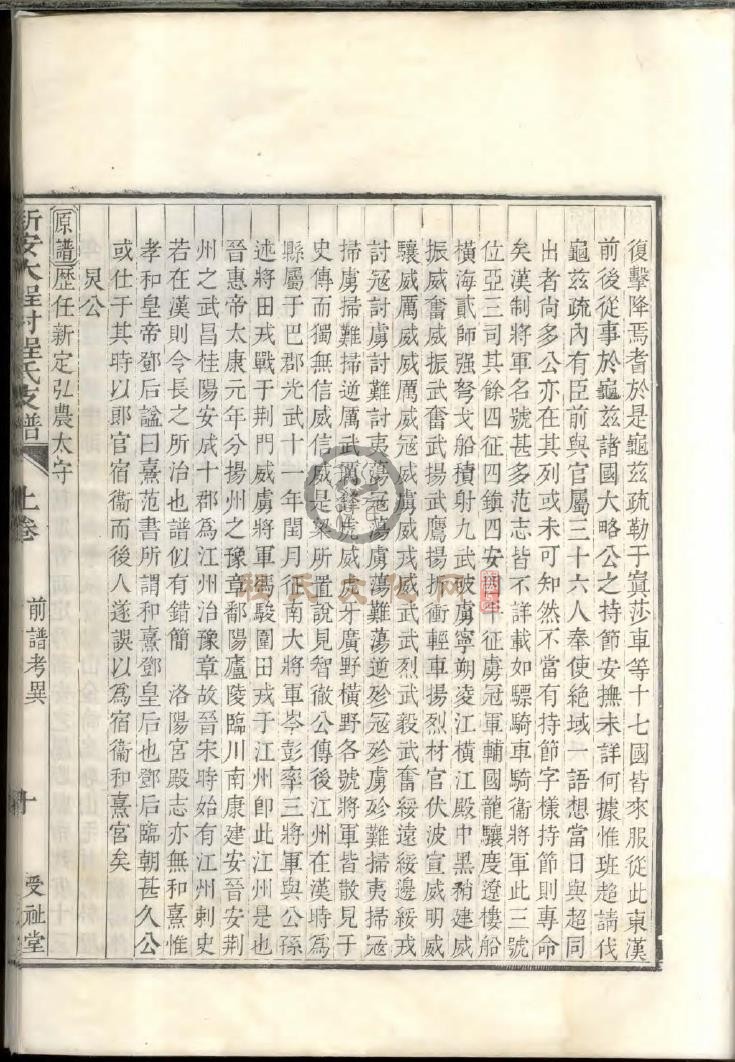 復擊降焉耆於是龜茲疏勒于寘莎車等十七國皆來服從此東漢
前後從事於龜茲諸國大略公之持節安撫未詳何據惟班超請伐
龜茲疏內有臣前與官屬三十六人奉使絶域一語想當日與超同
出者尚多公亦在其列或未可知然不當有持節字樣持節則專命
矣漢制將軍名號甚多范志皆不詳載如驃騎車騎衞將軍此三號
位亞三司其餘四征四鎮四安四平征虜冠軍輔國龍驤度遼樓船
橫海貳師强弩戈船積射九武破虜寧朔凌江橫江殿中黑矟建威
振威奮威振武奮武揚武鷹揚折衝輕車揚烈材官伏波宣威明威
驤威厲威威厲威寇威虜威戎威武武烈武毅武奮綏遠綏邊綏戎
討寇討虜討難討夷蕩寇蕩虜蕩難蕩逆殄寇殄虜殄難掃夷掃寇
掃虜掃難掃逆厲武厲鋒虎威虎牙廣野橫野各號將軍皆散見于
史傳而獨無信威信威是梁所置說見智徹公傳後江州在漢時爲
縣屬于巴郡光武十一年閏月征南大將軍岑彭率三將軍與公孫
述將田戎戰于荆門威虜將軍馮駿圍田戎于江州卽此江州是也
晉惠帝太康元年分揚州之豫章鄱陽廬陵臨川南康建安晉安荆
州之武昌桂陽安成十郡爲江州治豫章故晉宋時始有江州刺史
若在漢則令長之所治也譜似有錯簡　洛陽宮殿志亦無和熹惟
孝和皇帝鄧后諡曰熹范書所謂和熹鄧皇后也鄧后臨朝甚久公
或仕于其時以郎官宿衞而後人遂誤以爲宿衞和熹宮矣
炅公
原譜歷任新定弘農太守
新安大程村程氏支譜　上卷　前譜考異　十　受祉堂
程氏文化网